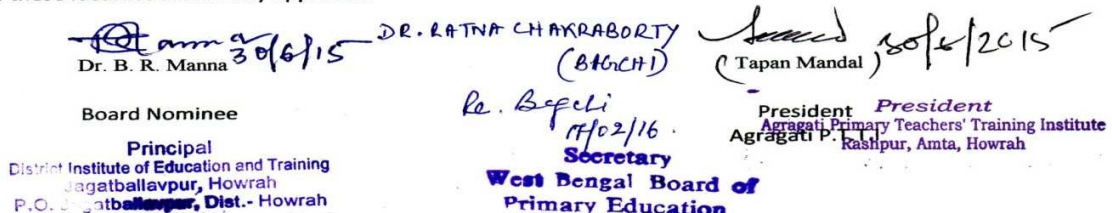 Manna 30/6/15
Dr. B. R. Manna
Board Nominee
Principal
District Institute of Education and Training
Jagatballavpur, Howrah
P.O. Jagatballavpur, Dist.- Howrah
DR. RATNA CHAKRABORTY
(BAGCHI)
Re. Bagchi
17/02/16.
Secretary
West Bengal Board of
Primary Education
30/6/2015
(Tapan Mandal)
President
Agragati P.T.T.I
President
Agragati Primary Teachers' Training Institute
Rashpur, Amta, Howrah